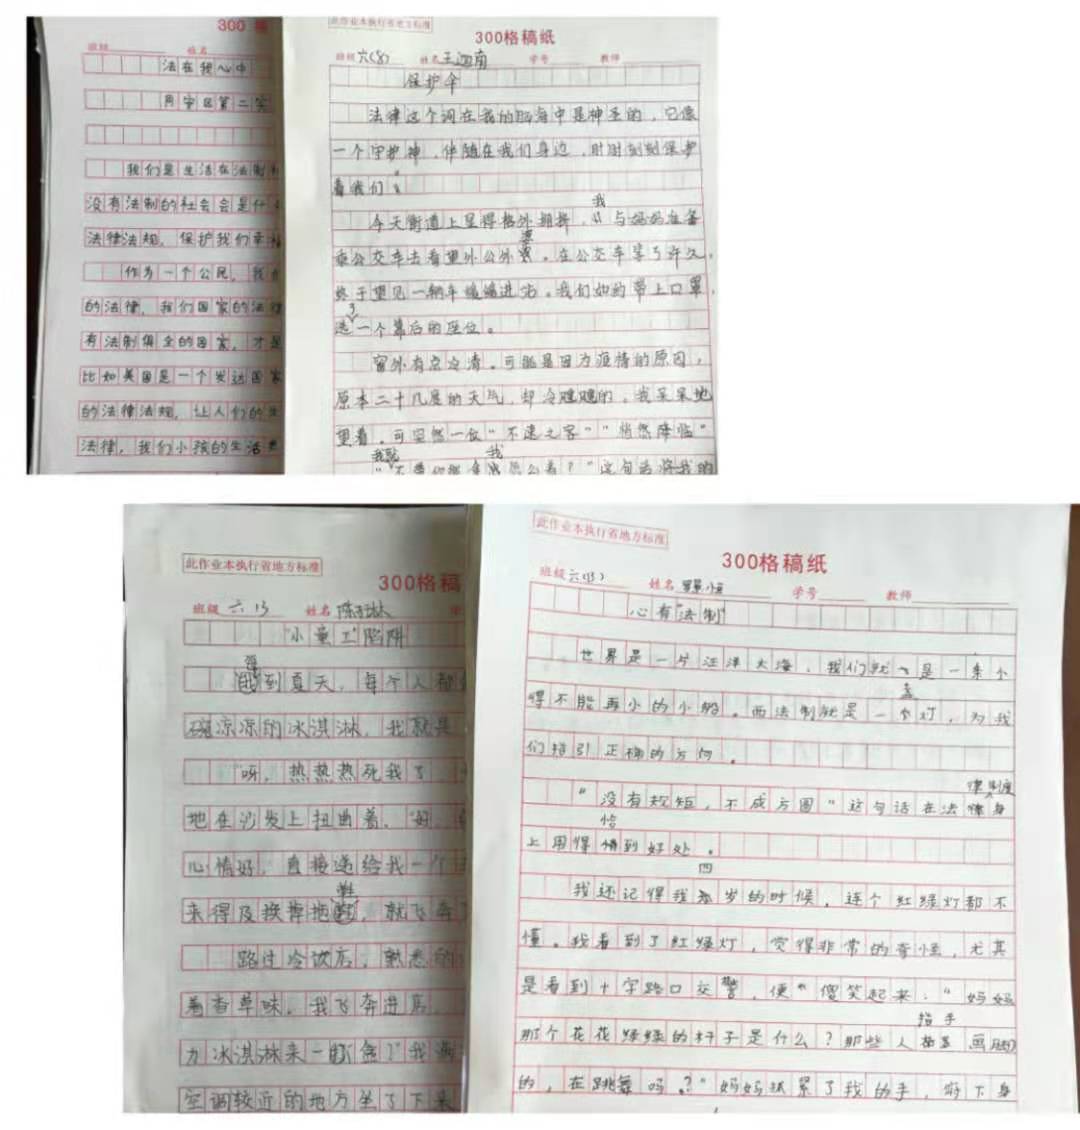 300格
班级 姓名
法在我心中
区第二实
我们是生活在法制
没有法制的社会会是什么
法律法规，保护我们幸福
作为一个公民，我
的法律，我们国家的法律
有法制俱全的国家，才是
比如美国是一个发达国家
的法律法规，让人们的生
法律，我们小孩的生活
此作业本执行省地方标准
300格稿纸
班级 六(8) 姓名 王 南 学号 教师
保护伞
法律这个词在我的脑海中是神圣的，它像
一个守护神，伴随在我们身边，时时刻刻保护
着我们。
我
今天街道上显得格外拥挤，与妈妈准备
乘公交车去看望外公外婆。在公交车等了许久，
终于望见一辆车缓缓进站。我们如约带上口罩，
选了一个靠后的座位。
窗外有点冷清。可能是因为疫情的原因，
原本二十几度的天气，却冷飕飕的，我呆呆地
望着。可突然一位“不速之客”“悄然降临”
这句话将我的
此作业本执行省地方标准
300格稿
班级 六13 姓名 陈
“小童工”陷阱
到夏天，每个人都
碗凉凉的冰淇淋，我就是
“呀，热热热死我了，
地在沙发上扭曲着，“好，
心情好，直接递给我一个
来得及换掉拖鞋，就飞奔
路过冷饮店，熟悉的
着香草味，我飞奔进店，
力冰淇淋来一 ”我满
空调较近的地方坐了下来
此作业本执行省地方标准
300格稿纸
班级 六(13) 姓名 学号 教师
心有“法制”
世界是一片汪洋大海，我们就是一条小
盏
得不能再小的小船。而法制就是一个灯，为我
们指引正确的方向。
律制度
“没有规矩，不成方圆”这句话在法律身
恰
上用得恰到好处。
四
我还记得我 岁的时候，连个红绿灯都不
懂。我看到了红绿灯，觉得非常的奇怪，尤其
是看到十字路口交警，便傻笑起来：“妈妈
指手
那个花花绿绿的杆子是什么？那些人 画脚
的，在跳舞吗？”妈妈抓紧了我的手，俯下身